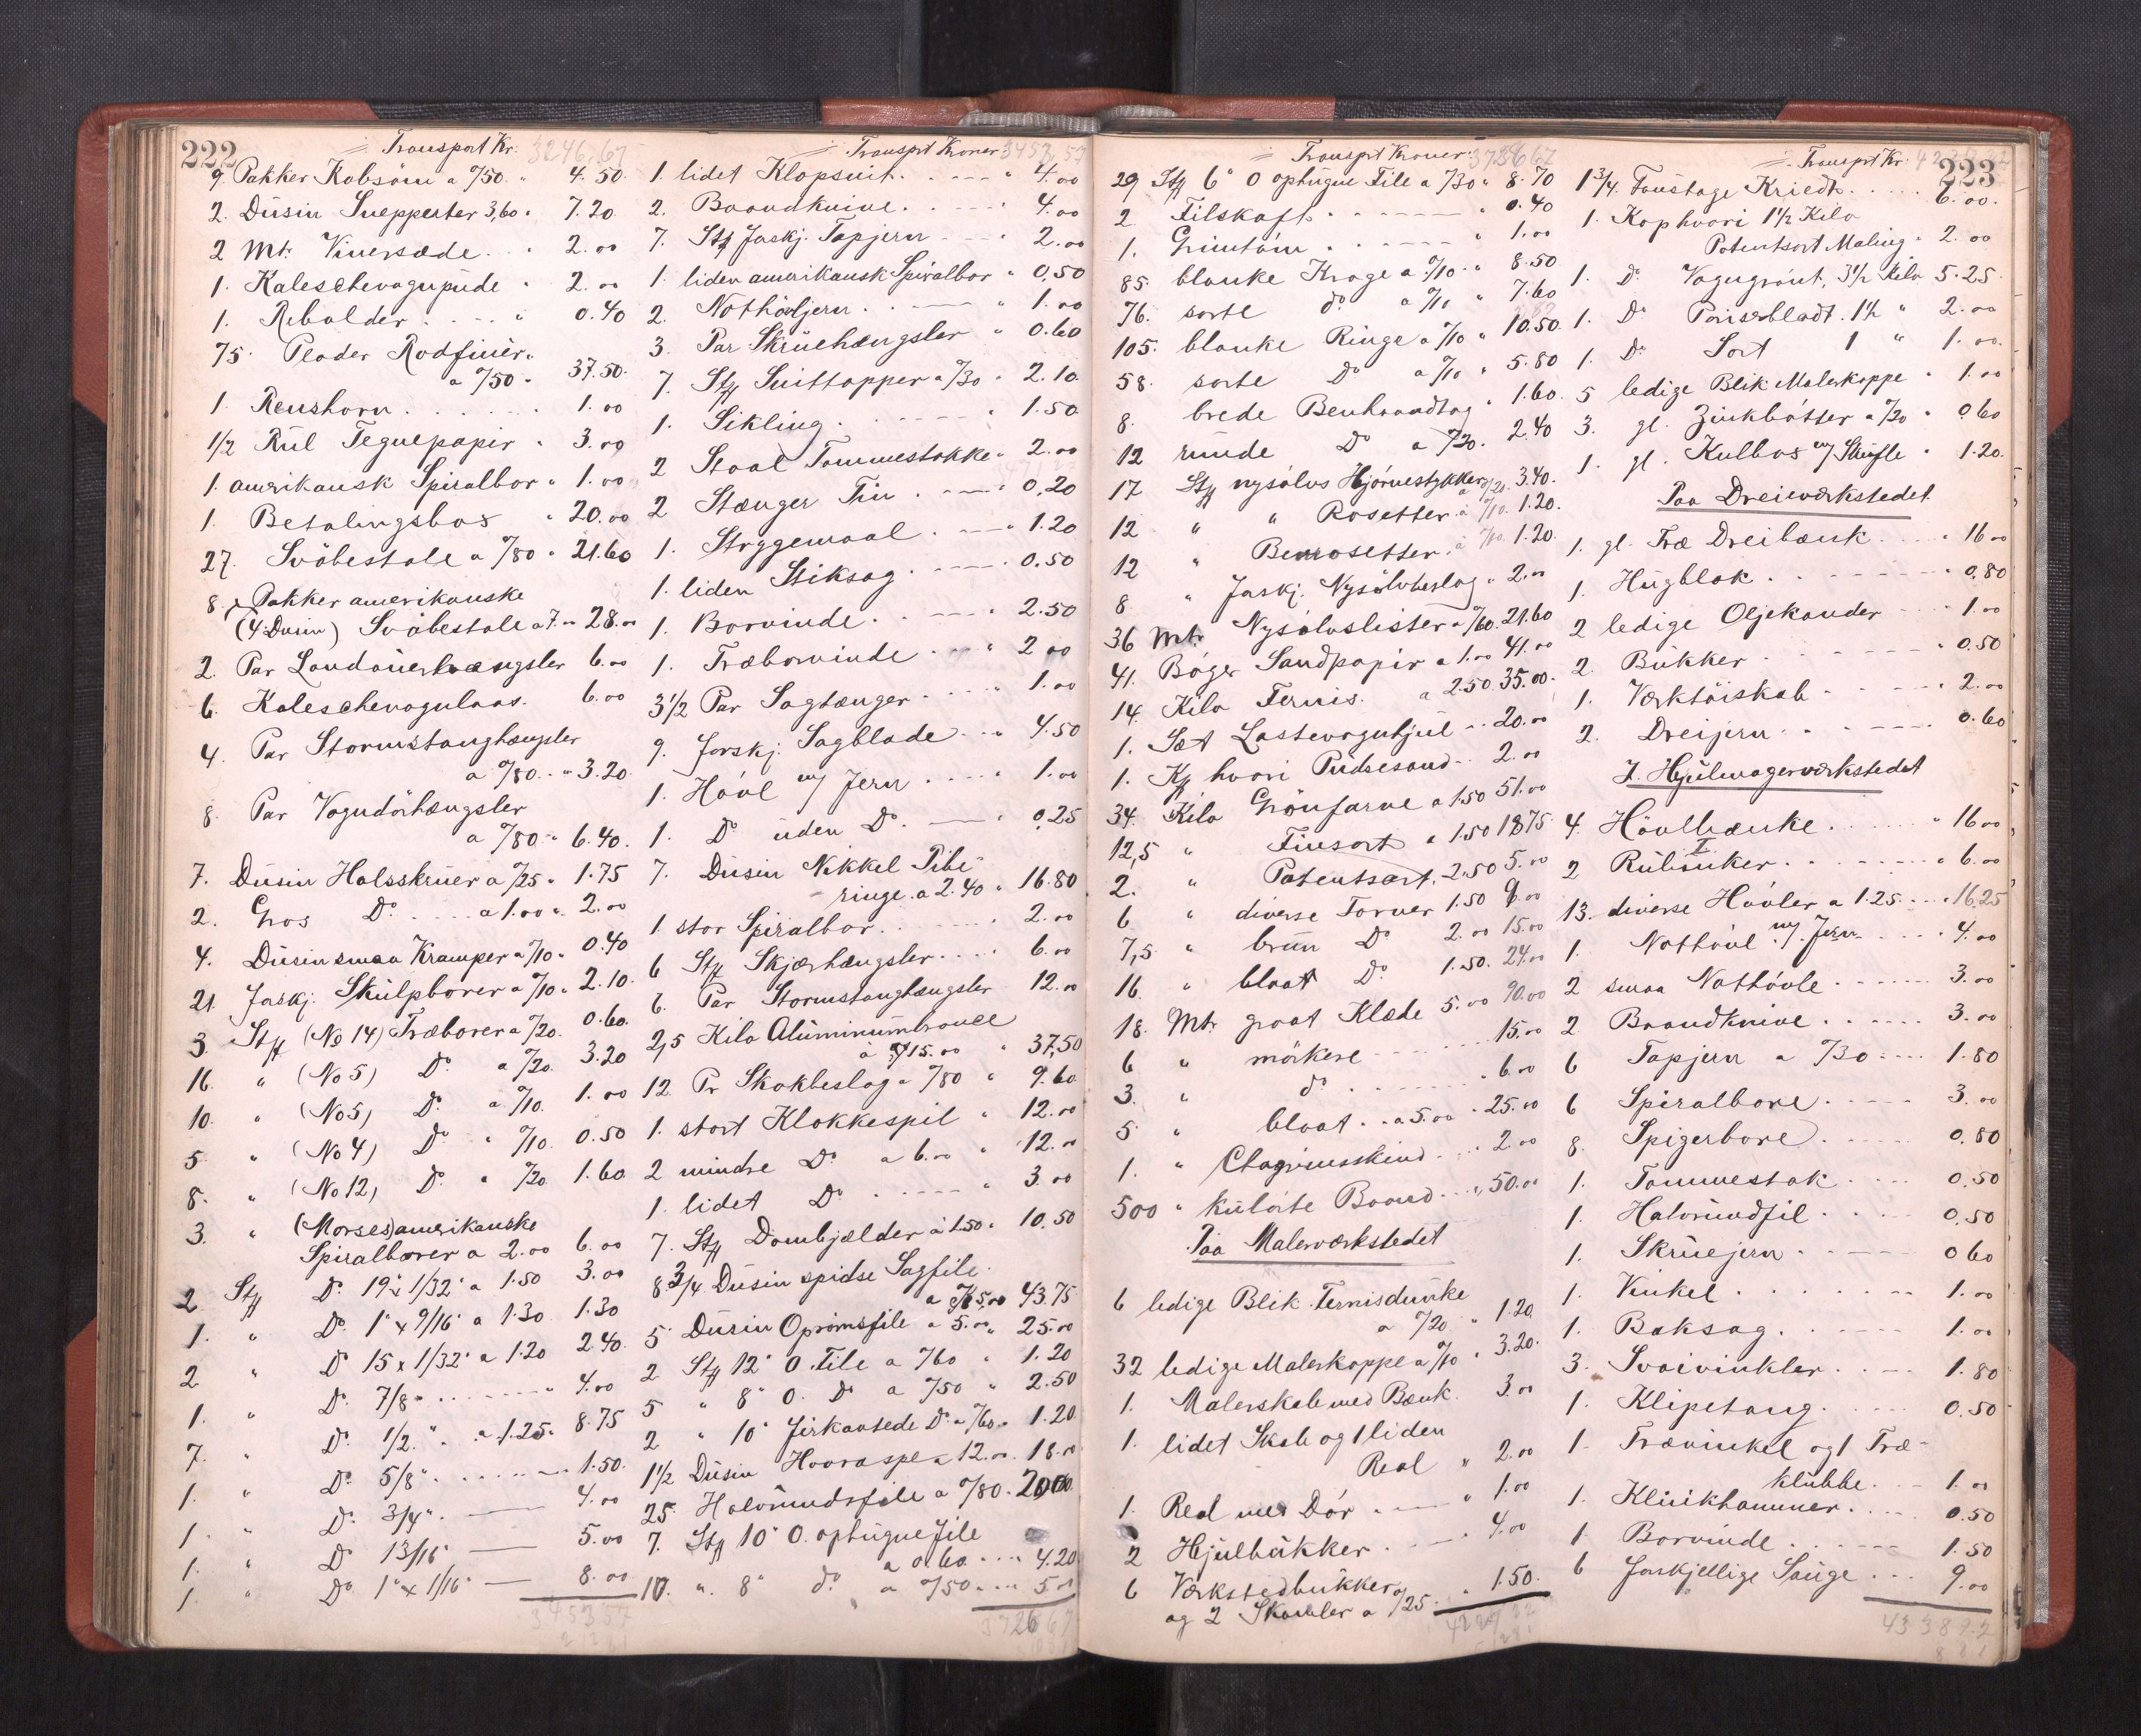 222
Transport Kr. 3246.67
9 Pakker Kobsöm a %50 " 4.50
2. Düsin Snepperter 3,60 " 7.20
2 Mt. Vinersæde . . " 2.00
1. Kaleschevognpüde " 2.00
1. Rebolder . . . . " 0.40
75. Plader Rodfinér "
a %50 " 37.50
1. Renshorn . . . . . 1.00
1/2 Rül Tegnepapir " 3.00
1. amerikansk Spiralbor " 1.00
1. Betalingsbos " 20.00
27. Svöbestole a %80 " 21.60
8 Pakker amerikanske
(4 Dusin) Svöbestole a 7.00 28.00
2. Par Landauerhængsler 6.00
6. Kaleschevognlaas. 6.00
4. Par Stormstanghængsler
a %80 . . " 3.20
8. Par Vogndörhængsler
a %80 " 6.40.
7. Düsin Halsskrüer a %25 " 1.75
2. Gros Do . . . a 1.00 " 2.00
4. Düsin smaa Kramper a %10 " 0.40
21. Forskj. Skülpborer a %10 " 2.10.
3 Stk (No 14) Træborer a %20. 0.60.
16. " (No 5) Do a %20. 3.20
10. " (No 5) Do a %10. 1.00
5. " (No 4) Do " %10. 0.50
8. " (No 12) Do " %20 1.60
3. " (Morses) amerikanske
Spiralborer a 2.00 6.00
2 Stk Do 19" x 1/32" a 1.50 3.00
1. " Do 1" x 9/16" a 1.30 1.30
2 " Do 15 x 1/32" a 1.20 2.40
1. " Do 7/8" . . . . . " 4.00
7. " Do 1/2 " . . a 1.25 " 8.75
1. " Do 5/8" . . . . . . 1.50.
1. " Do 3/4" . — 4.00
1. " Do 13/16" — 5.00
1. " Do 1" x 1/16" — 8.00
3453 57
Transprt Kroner 3453,57
1. lidet Klopsnit. . — " 4.00
2. Baandknive. . — " 4.00
7. Stk Forskj. Tapjern — " 2.00
1. liden amerikansk Spiralbor " 0,50
2. Nothövljern . . — " 1.00
3. Par Skrüehængsler " 0.60
7. Stk Snittapper a %30 " 2.10.
1. Sikling. . — " 1.50
2 Staal Tommestokke " 2.00
2 Stænger Tin . — " 0,20
1. Stryggemaal . — " 1.20
1. liden Stiksag . — 0.50
1. Borvinde . . — " 2.50
1. Træborvinde . . " 2.00
3 1/2 Par Sagtænger . . . . 1.00
9. Forskj. Sagblade . . " 4.50
1. Hövl m/ Jern . . . . " 1.00
1. Do üden Do . — " 0,25
7. Düsin Nikkel Pibe-
ringe. a 2.40 " 16.80
1 stor Spiralbor. . . . . 2.00
6 Stk Skjærhængsler . . . . 6.00
6. Par Stormstanghængsler 12.00
2,5 Kilo Alüminümbronce
à 15.00 " 37,50
12. Pr Skakbeslag a %80 " 9.60
1. stort Klokkespil " 12.00
2 mindre Do a 6.00 " 12.00
1. lidet Do . . — " 3.00
7. Stk Dombjælder à 1.50 " 10.50
8 3/4 Düsin spidse Sagfile.
a 5,00 43.75
5 Düsin Opromsfile a 5.00 " 25.00
2 Stk 12" O. File a %60 " 1.20
5 " 8" O. Do a %50 " 2.50
2 " 10" Firkantede Do a %60 " 1.20
1 1/2 Düsin Hovraspe a 12.00 18.00
25. Halvründsfile a %80. 20.00
7. Stk 10" O. ophügne File
a 0.60 . . . . 4.20
10. " 8" do a %50 . . . 5.00
3726 67
223
Transprt Kroner: 3726 67
29 Stk 6" O ophügne File a %30 " 8.70
2 Filskaft . . . . " 0.40
1. Grimtöm . . . . " 1.00
85. blanke Kroge a %10 " 8.50
76. sorte do a %10 " 7.60
105. blanke Ringe a %10 " 10.50.
58. sorte Do a %10 " 5.80
8. brede Benhaandtag " 1.60.
12 runde Do a %20. 2.40
17 Stk nysölvs Hjörnestykker a %20. 3.40.
12 " " Rosetter a %10. 1.20.
12 " Benrosetter a %10. 1.20.
8 " Forskj. Nysölvbeslag " 2.00
36 Mt. Nysölvslister a %60. 21.60
41. Böger Sandpapir a 1.00 41.00
14. Kilo Fernis. a 2.50 35.00.
1. Sæt Lastevognhjul . . 20.00
1. Kp hvori Püdsesand . . 2.00
34. Kilo Grönfarve a 1.50 51.00
12,5 " Finsort a 1.50 18.75
2. " Patentsort. 2.50 5.00
6 " diverse Farver 1.50 9.00
7,5 " brün Do 2.00 15.00
16. " blaat Do 1.50. 24.00
18. Mt. graat Klæde 5.00 90.00
6 " mörkere . . . . 15.00
3. " do . . . . " 6.00
5. " blaat . . a 5.00 " 25.00
1. " Chagrinsskind . . . 2.00
500 " külörte Baand . . . " 50.00
Paa Malerværkstedet
6 ledige Blik Fernisdunke
a %20 " 1.20.
32 ledige Malerkoppe a %10 " 3.20.
1. Malerskab med Bænk. 3.00
1. lidet Skab og 1 liden
Reol " 2.00
1. Reol med Dör . — " 1.00
2 Hjülbükker . . — " 4.00
6 Værkstedbukker
og 2 Skamler a %25. " 1.50.
Transprt Kr:
1 3/4. Foustage Kridt. . . . . . 6.00.
1. Kop hvori 1 1/2 Kilo
Patentsort Maling " 2.00
1. Do Vogngrönt, 3 1/2 Kilo 5.25.
1. Do Pariserblaat. 1 1/2 " 2.00
1. Do Sort 1 " 1.00.
5 ledige Blik Malerkoppe " 1.00
3. gl. Zinkbötter a %20 " 0.60
1. gl. Kulbos m/ Skuffle " 1.20.
Paa Dreiværkstedet
1. gl. Træ Dreibænk . . . " 16.00
1. Hügblok . . . . . . " 0.80
2 ledige Oljekander . . . 1.00
2. Bükker . . . . . " 0.50
1. Værktöiskab . . . . . " 2.00
2. Dreijern . . . — 0.60
I. Hjülmagerværkstedet
4. Hövlbænke . . . . " 16.00
2 Rübünker . . . . . . " 6.00
13. diverse Hövler a 1.25 . . . " 16,25
1. Nothövl m/ Jern . . . . 4.00
2 smaa Nothövle . . . . . . 3.00
2 Baandknive . . . . . . 3.00
6 Tapjern a %30 . . . . 1.80
6 Spiralbore . . . . . 3.00
8. Spigerbore . . . . . 0.80
1. Tommestok . . . . 0.50
1. Halvründfil . . . . 0,50
1. Skrüejern . . . . 0.60
1. Vinkel . . . . . . . . 1.00
1. Baksag . . . . . . 1.00
3. Svaivinkler . . . . 1.80
1. Klipetang . . . . 0.50
1. Trævinkel og 1 Træ-
klübbe . . . 1.00
1. Klinkhammer . . . . 0.50
1. Borvinde . . . . . . 1.50
6 Forskjellige Sauge . . . 9.00
4338 92